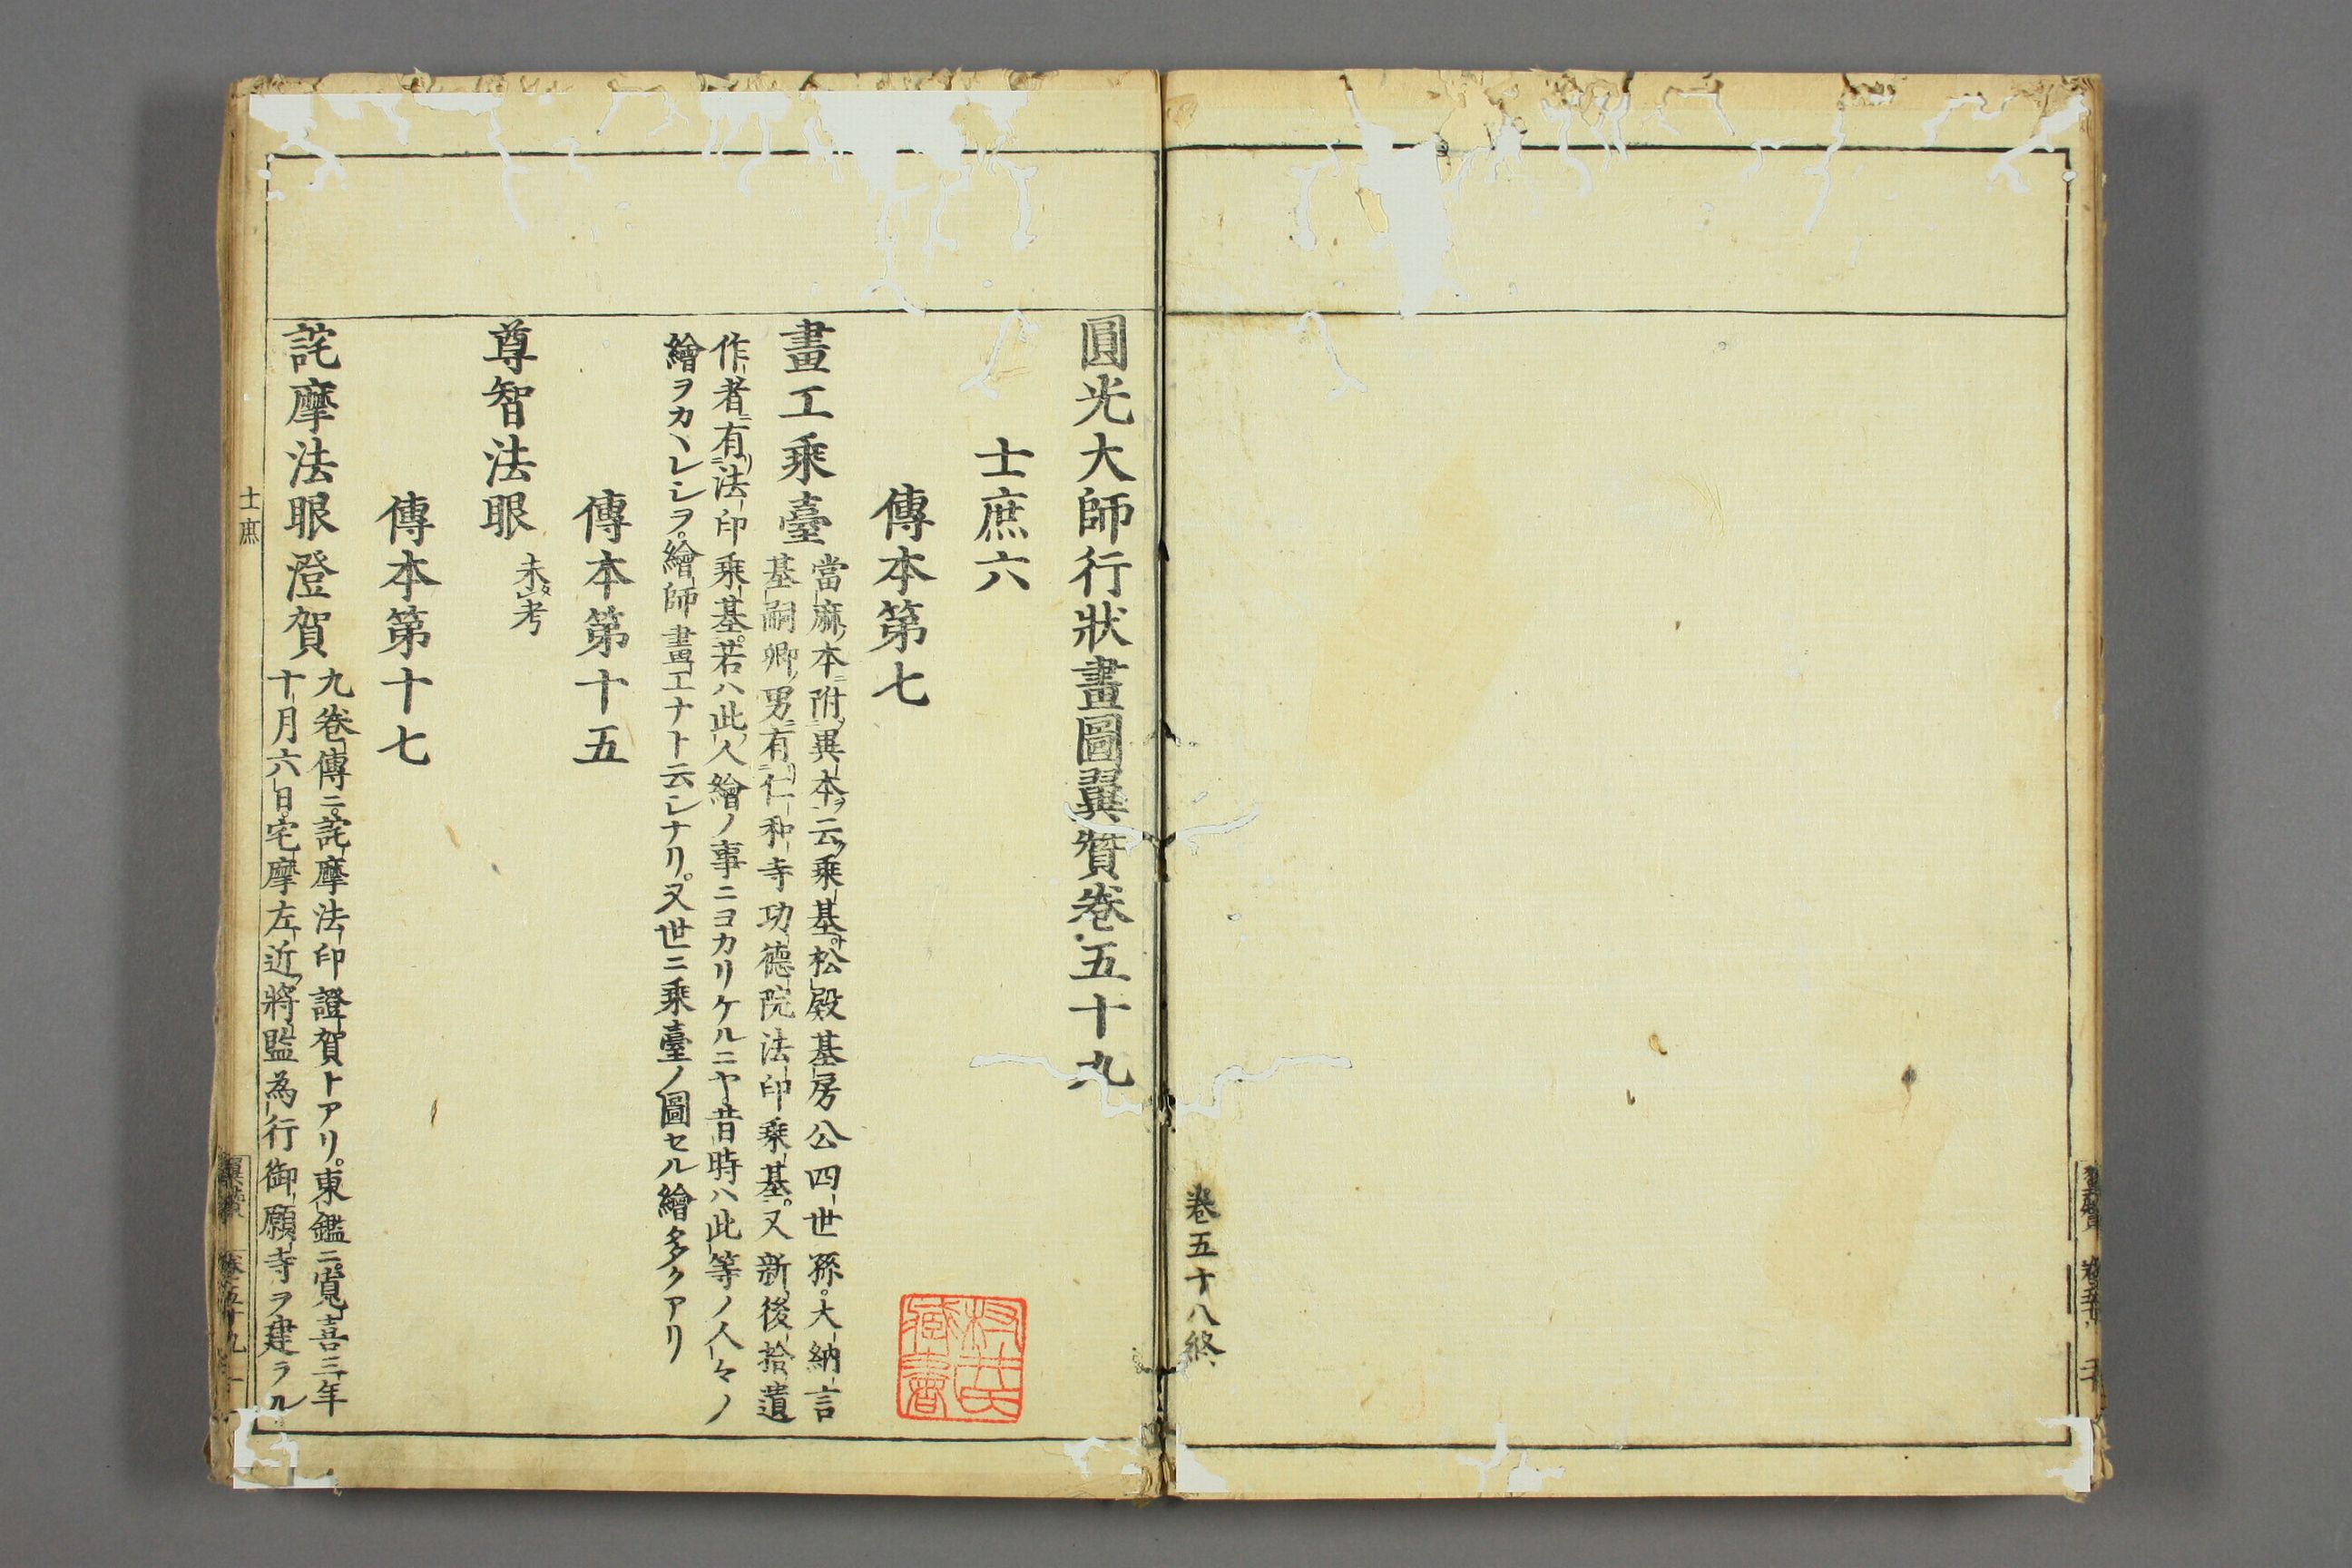 卷五十八終
圓光大師行狀畫圖翼賛卷五十九
士庶六
傳本第七
畫工乘臺
當麻本附異本云乘基松殿基房公四世孫大納言
基嗣卿男有仁和寺功德院法印乘基又新後拾遺
作者有法印乘基若ハ此人繪ノ事ニヨカリケルニヤ昔時ハ此等ノ人々ノ
繪ヲカヽレシヲ繪師畫工ナト云シナリ又世ニ乘臺ノ圖セル繪多クアリ
傳本第十五
尊智法眼
未考
傳本第十七
詫摩法眼澄賀
九卷傳ニ詫摩法印證賀トアリ東鑑ニ寬喜三年
十月六日宅摩左近將監為行御願寺ヲ建ラル
士庶